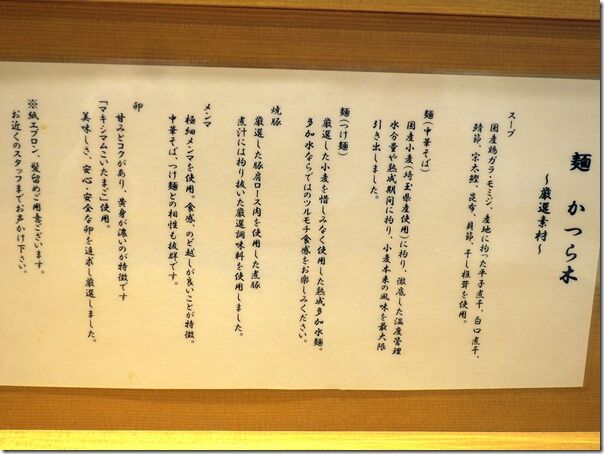 麺 かつら木
～厳選素材～
スープ
国産鶏ガラ・モミジ、産地に拘った平子煮干、白口煮干、
鯖節、宗太鰹、昆布、貝節、干し椎茸を使用。
麺(中華そば)
国産小麦(埼玉県産使用)に拘り、徹底した温度管理
水分量や熟成期間に拘り、小麦本来の風味を最大限
引き出しました。
麺(つけ麺)
厳選した小麦を惜しみなく使用した熟成多加水麺。
多加水ならではのツルモチ食感をお楽しみください。
焼豚
厳選した豚肩ロース肉を使用した煮豚
煮汁には拘り抜いた厳選調味料を使用しました。
メンマ
極細メンマを使用。食感、のど越しが良いことが特徴。
中華そば、つけ麺との相性も抜群です。
卵
甘みとコクがあり、黄身が濃いのが特徴です
「マキシマムこいたまご」使用。
美味しさ、安心・安全な卵を追求し厳選しました。
※紙エプロン、髪留めご用意ございます。
お近くのスタッフまでお声かけ下さい。